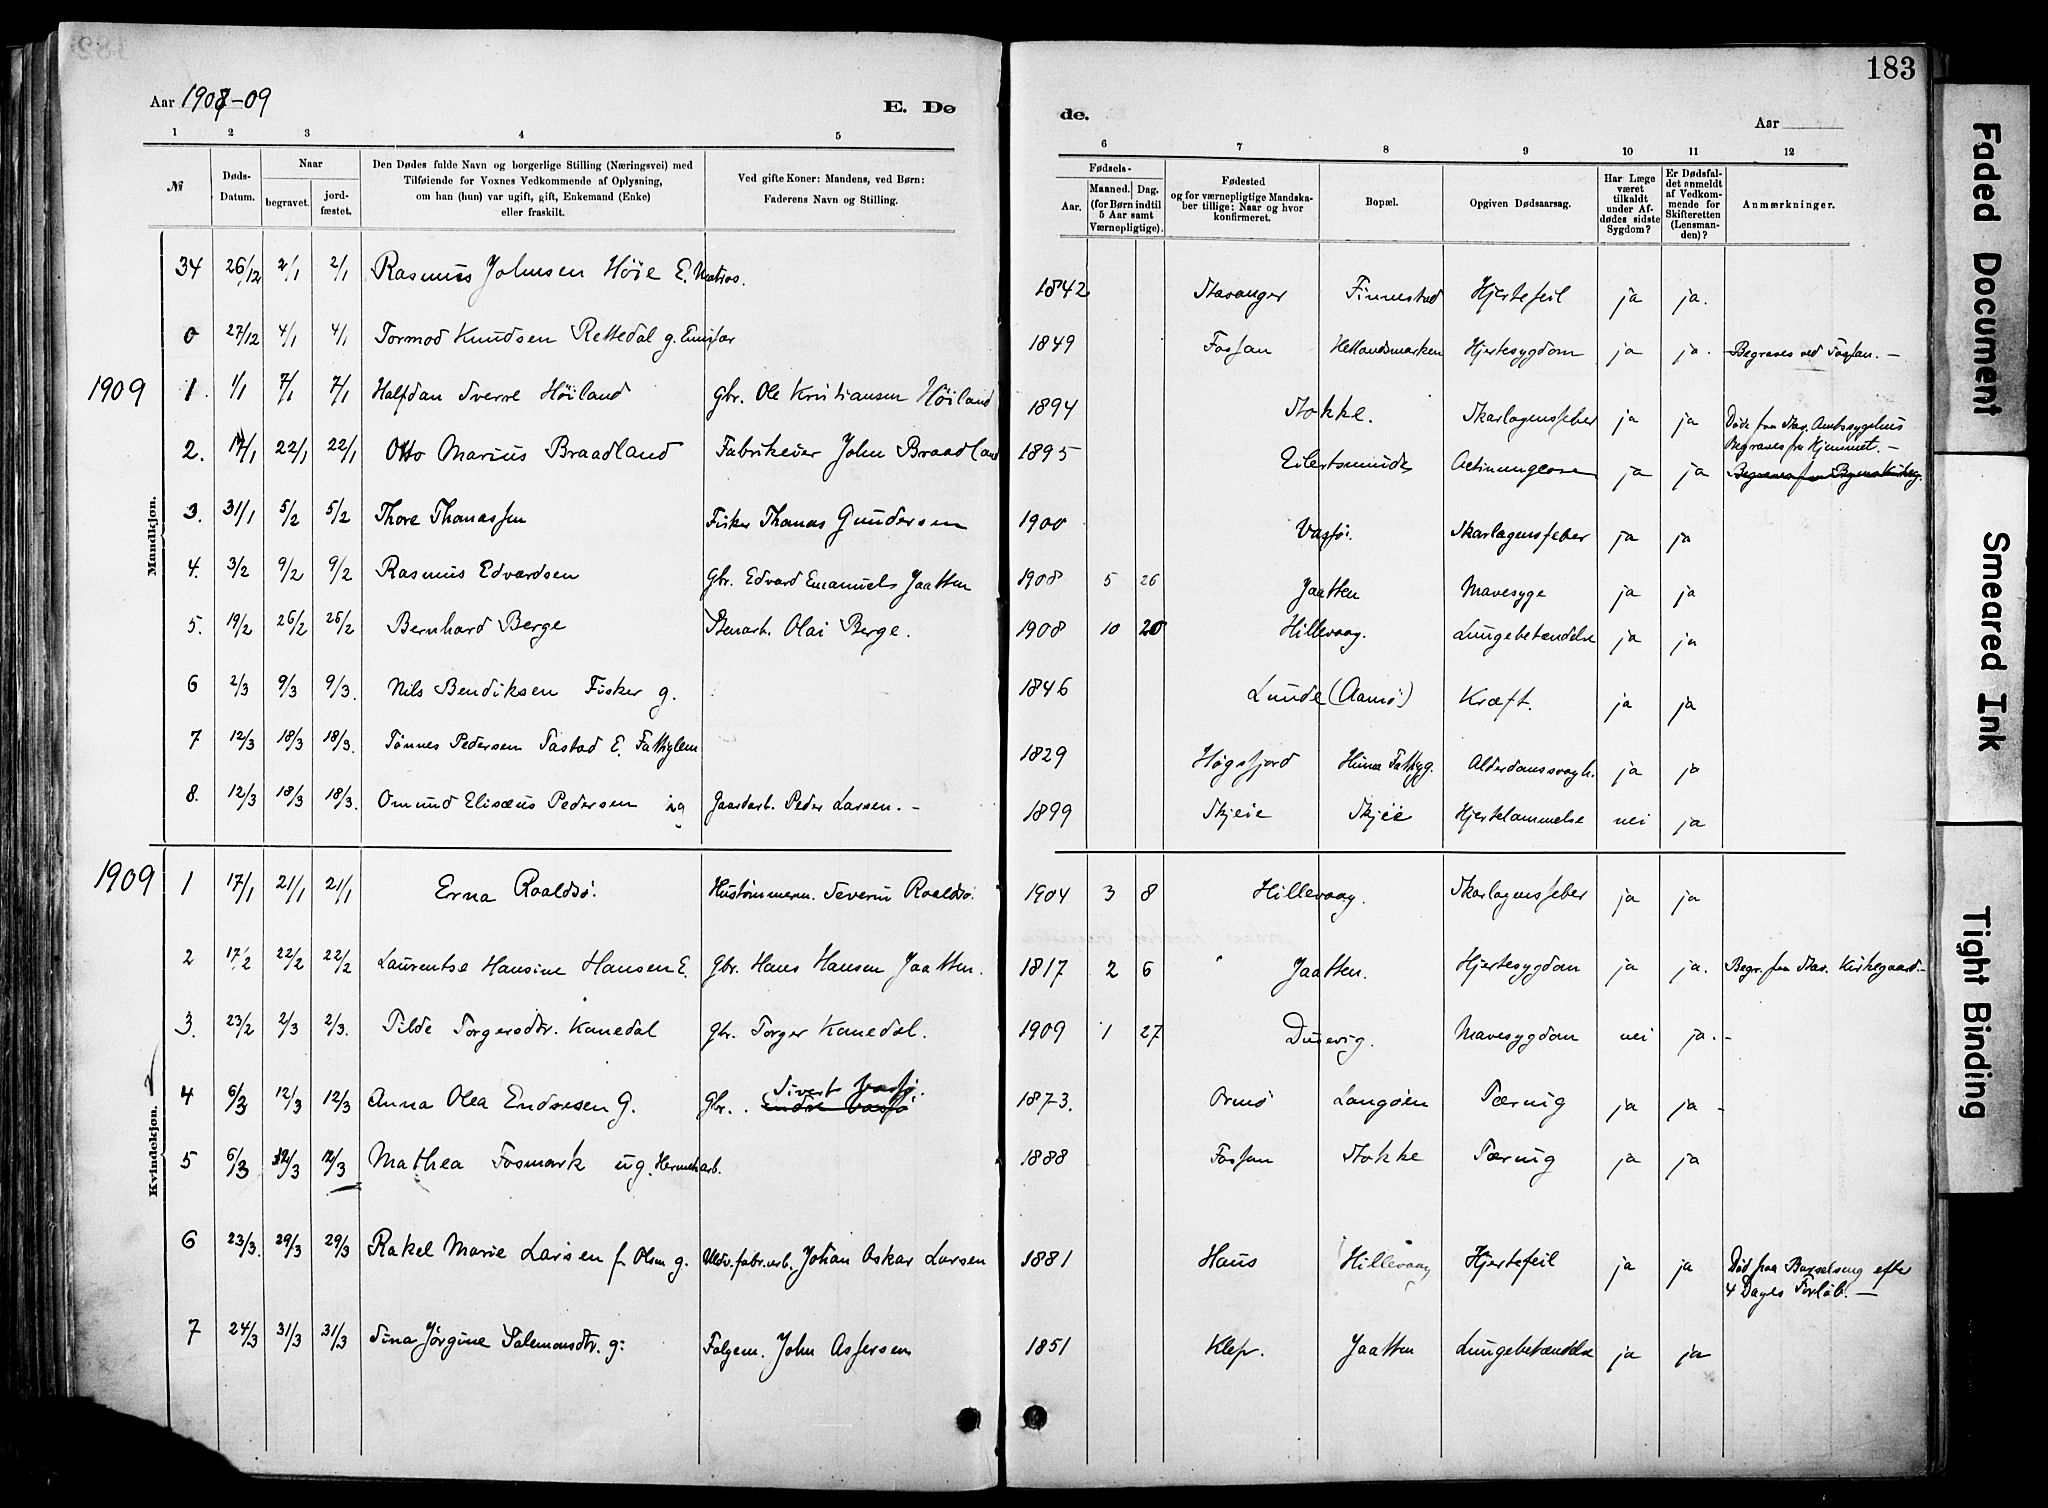 183
Aar 1908-09
E. Døde.
Aar
1 2 3 4 5 6 7 8 9 10 11 12
№
Døds-Datum.
Naar
begravet.
jord-fæstet.
Den Dødes fulde Navn og borgerlige Stilling (Næringsvei) med
Tilføiende for Voxnes Vedkommende af Oplysning,
om han (hun) var ugift, gift, Enkemand (Enke)
eller fraskilt.
Ved gifte Koner: Mandens, ved Børn:
Faderens Navn og Stilling.
Fødsels-
Aar.
Maaned. Dag.
(for Børn indtil
5 Aar samt
Værnepligtige).
Fødested
og for værnepligtige Mandska-
ber tillige: Naar og hvor
konfirmeret.
Bopæl.
Opgiven Dødsaarsag.
Har Læge
været
tilkaldt
under Af-
dødes sidste
Sygdom?
Er Dødsfal-
det anmeldt
af Vedkom-
mende for
Skifteretten
(Lensman-
den)?
Anmærkninger.
Mandkjøn.
34 26/12 2/1 2/1 Rasmus Johnsen Höie E. Matros. 1842 Stavanger Finnestad Hjertefeil ja ja.
0 27/12 4/1 4/1 Tormod Knudsen Rettedal g. 1849 Fossan Hetlandsmarken Hjertesygdom ja ja. Begraves ved Fossan. –
1909 1. 1/1 7/1 7/1 Halfdan Sverre Höiland Gbr. Ole Kristiansen Höiland 1894 Stokke. Skarlagensfeber ja ja Døde paa Stav. Amtssygehus
Begraves fra Hjemmet. –
2. 17/1 22/1 22/1 Otto Marius Braadland Fabrikeier John Braadland 1895 Eilertsminde ja ja
3. 31/1 5/2 5/2 Thore Thomassen Fisker Thomas Gundersen 1900 Vassö. Skarlagensfeber ja ja
4. 3/2 9/2 9/2 Rasmus Edvardsen Gbr. Edvard Emanuels Jaatten 1908 5 26 Jaatten Mavesyge ja ja
5. 19/2 26/2 26/2 Bernhard Berge Stenarb. Olai Berge. 1908 10 20 Hillevaag. Lungebetændelse ja ja
6 2/3 9/3 9/3. Nils Bendiksen Fisker g. 1846 Lunde (Aamö) Kræft. ja ja
7 12/3 18/3 18/3. Tönnes Pedersen Tastad E. Fattiglem 1829 Högsfjord Fattigg. Alderdomssvagh. ja ja
8. 12/3 18/3 18/3. Omund Elisæus Pedersen ug Gaardarb. Peder Larsen. – 1899 Skjeie Skjeie Hjertelammelse nei ja
Kvindekjøn.
1909 1 17/1 21/1 21/1 Erna Roaldsö. Hustømmerm. Severin Roaldsö. 1904 3 8 Hillevaag. Skarlagensfeber ja ja
2 17/2 22/2 22/2 Laurentse Hansine Hansen E. Gbr. Hans Hansen Jaatten. 1817 2 6 " Jaatten. Hjertesygdom ja ja. Begr. paa Stav. Kirkegaard. –
3. 23/2 2/3 2/3. Tilde Torgersdtr. Kanedal Gbr. Torger Kanedal. 1909 1 27 Dusevig. Mavesygdom nei ja. –
4 6/3 12/3 12/3 Anna Olea Endresen g. Gbr. Sivert Vassö. Endre Vassö 1873. Ormö Langöen Tæring ja ja –
5 6/3 12/3 12/3 Mathea Fosmark ug. Hermetikarb. 1888 Fossan Stokke Tæring ja ja
6 23/3. 29/3 29/3 Rakel Marie Larsen f. Olsen g. Uldv.fabr.arb. Johan Oskar Larsen 1881 Haus Hillevaag Hjertefeil ja ja Død paa Barselseng efter
4 Dages Forløb. –
7 24/3 31/3 31/3 Sina Jörgine Salemonsdtr. g: Folgem. John Asjersen 1851 Klep. Jaatten Lungebetændelse ja ja
Faded Document
Smeared Ink
Tight Binding